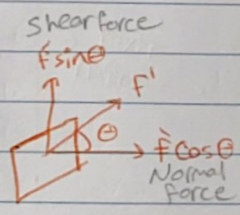 shear force
F sinθ
F'
θ
F cosθ
Normal
force